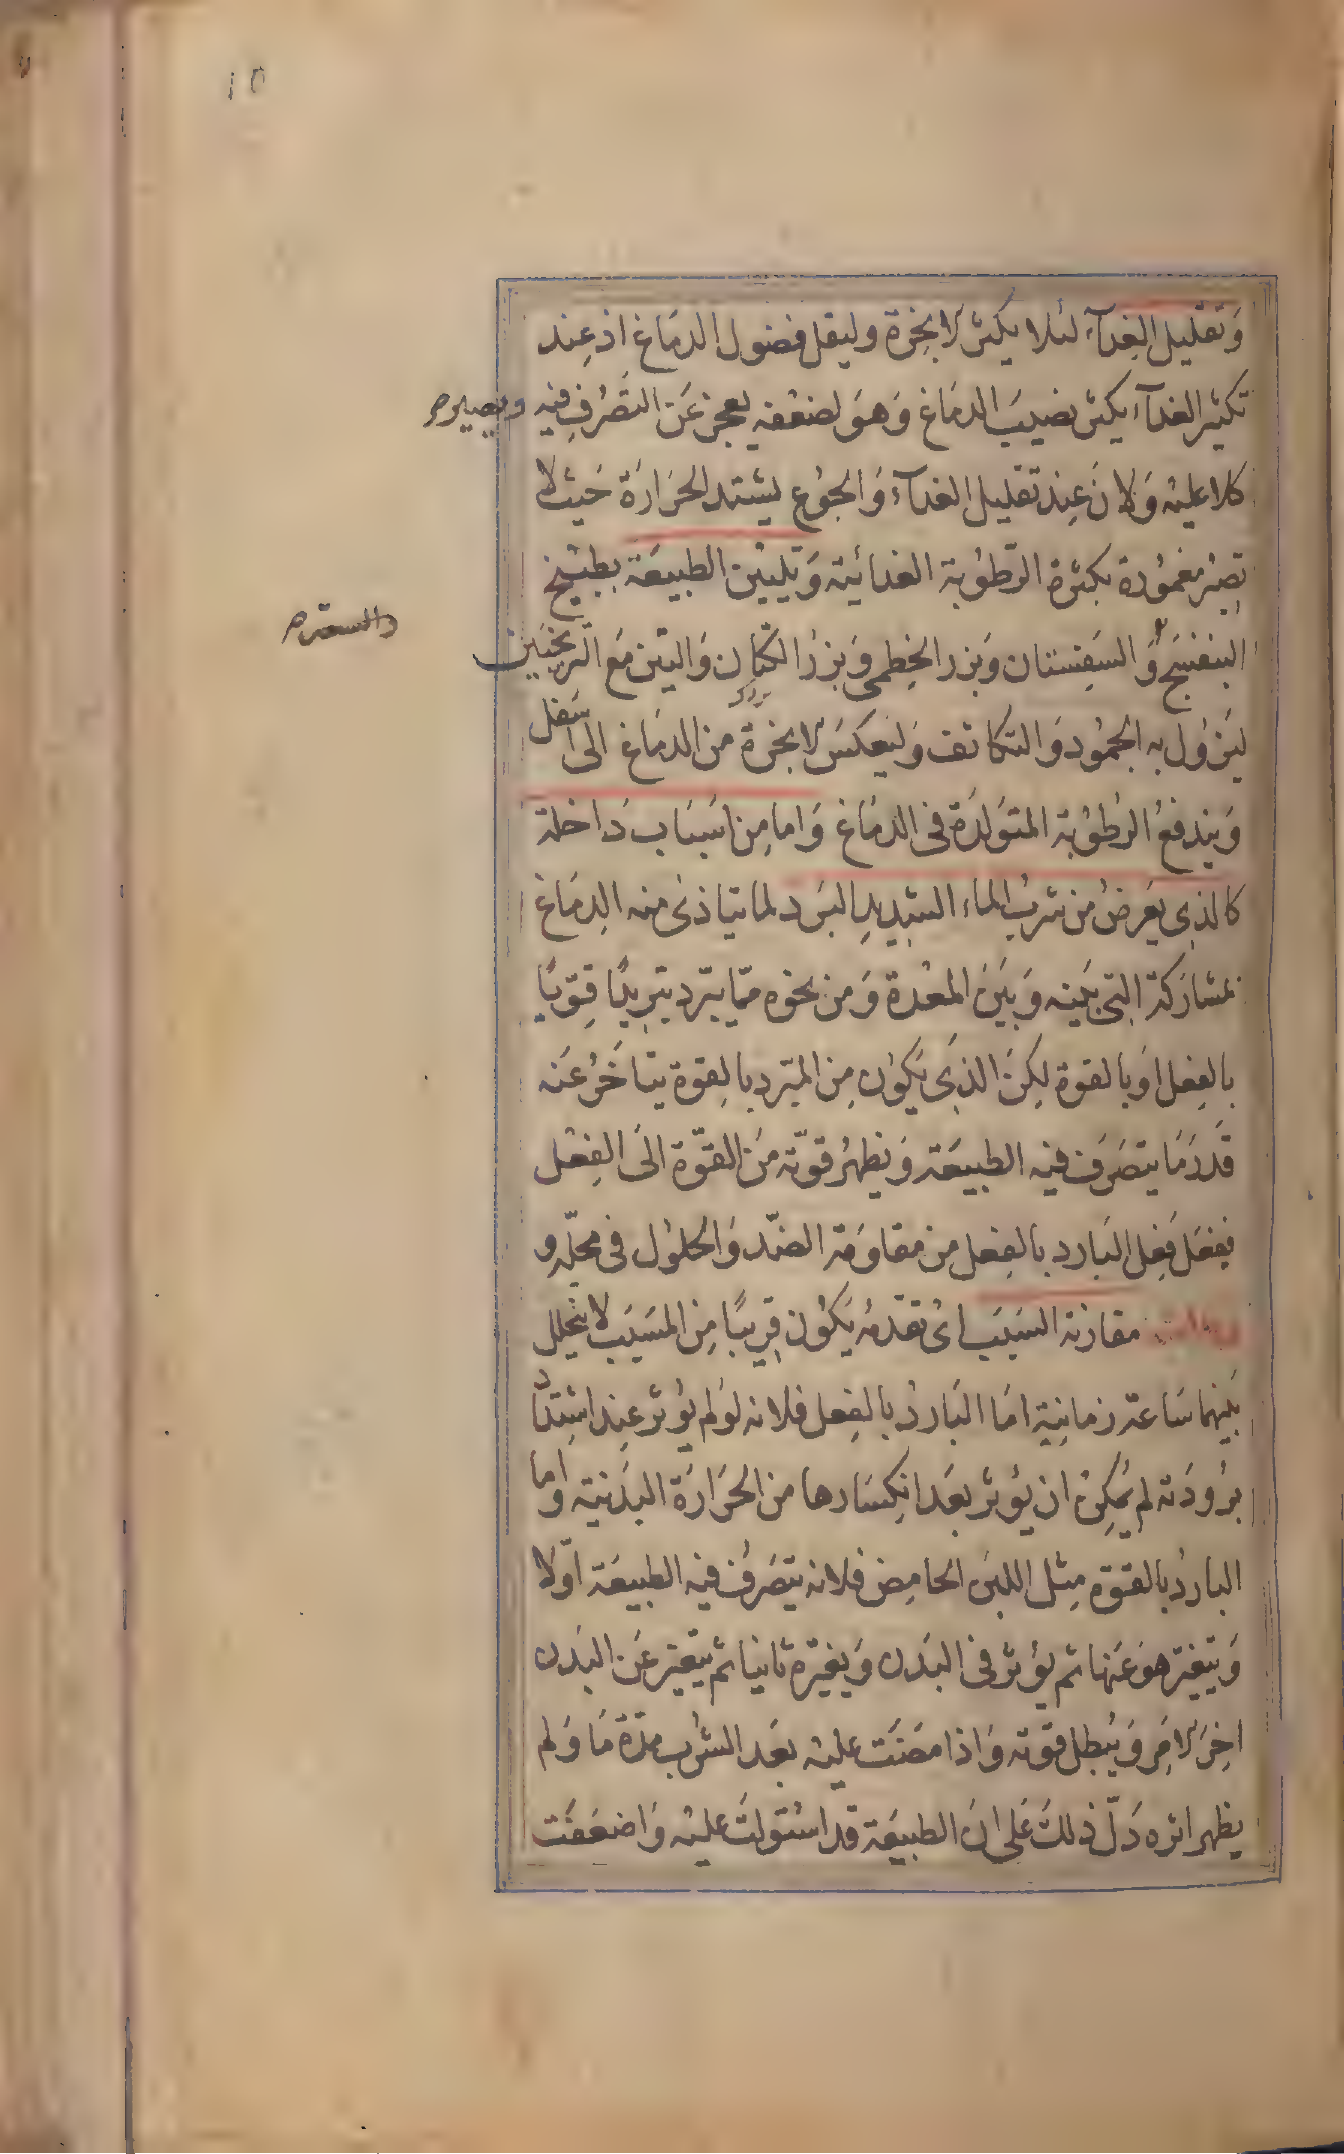 ١٥
وَتقليل الغِذآء لئلا يكثر الابخرة وليقل فضول الدمَاغ اذ عِند
تكثير الغذآء يكثر نصيب الدمَاغ وَهوَ لضعفه يعجز عَن التصَرف فيه ويصير
كلا عليه وَلانَ عِند تقليل الغذآء وَالجوُع يشتد الحرَارَة حَيث لا
تصير مغموُرة بكثرة الرّطوُبة الغذائية وَتليين الطبيعَة بطبيخ
البنفسج وَالسَفستان وَبزر الخِطمى وَبزر الكتان وَالتين مَع الترنجبين
والسعتر
ليزوُل به الجموُد وَالتكاثف وَلينعكسَ الابخرة من الدمَاغ الى اسَفل
وَيندفعُ الرطوُبة المتوَلدَة فى الدمَاغ وَاما مِن اسَبَاب دَاخلة
كالذى يعَرضُ من شربُ الماء الشديد البرَد لما يتاذى منه الدمَاغ
بمشارَكة التى بَينه وَبينَ المعدة وَمن نحوه ممّا يبرّد تبريدًا قوّيًا
بالفعِل اوَ بالقوة لكِنَ الذى يَكوُن مِن المبرّد بالقوة يتاخَرُ عَنه
قَدرَ مَا يتصَرَف فيه الطبيعَة وَيظهرُ قوّته مِنَ القوّة الىَ الفِعل
فيفعَل فِعل البَارد بالفعِل من مقاوَمَة الضّد وَالحلوُل فى محلّه و
مقارنة السَبَب اىُ تقدمُه يَكوُن قريبًا مِن المسَبب لا يتخلل
بَينهما سَاعة زمانيَة امَا البَاردُ بالفعِل فلانه لوَلم يؤثر عِند اشتداد
برُودَته لم يمُكِن ان يؤثر بعَد انكِسَارها من الحرَارَة البدَنية وَاما
البَاردُ بالقوّة مِثل اللبَن الحامِض فلانه يتصَرفُ فيه الطبيعَة اوّلا
وَيتغير هوَ عَنها ثم يؤثر فى البَدن وَيغيّره ثانيا ثم يتغير عَن البَدن
اخِرَ الامَر وَيبُطل قوته وَاذا مضَت عليه بعَد الشرب مدّة مَا وَلم
يظهر اثره دَلّ ذلكَ عَلى انَ الطبيعَة قد استوَلتَ عليه وَاضعَفَت